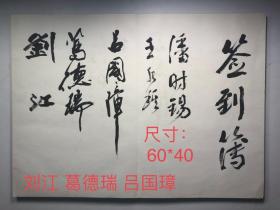 签到簿
潘时锡
王永
吕国璋
葛德瑞
刘江
尺寸：
60*40
刘江 葛德瑞 吕国璋